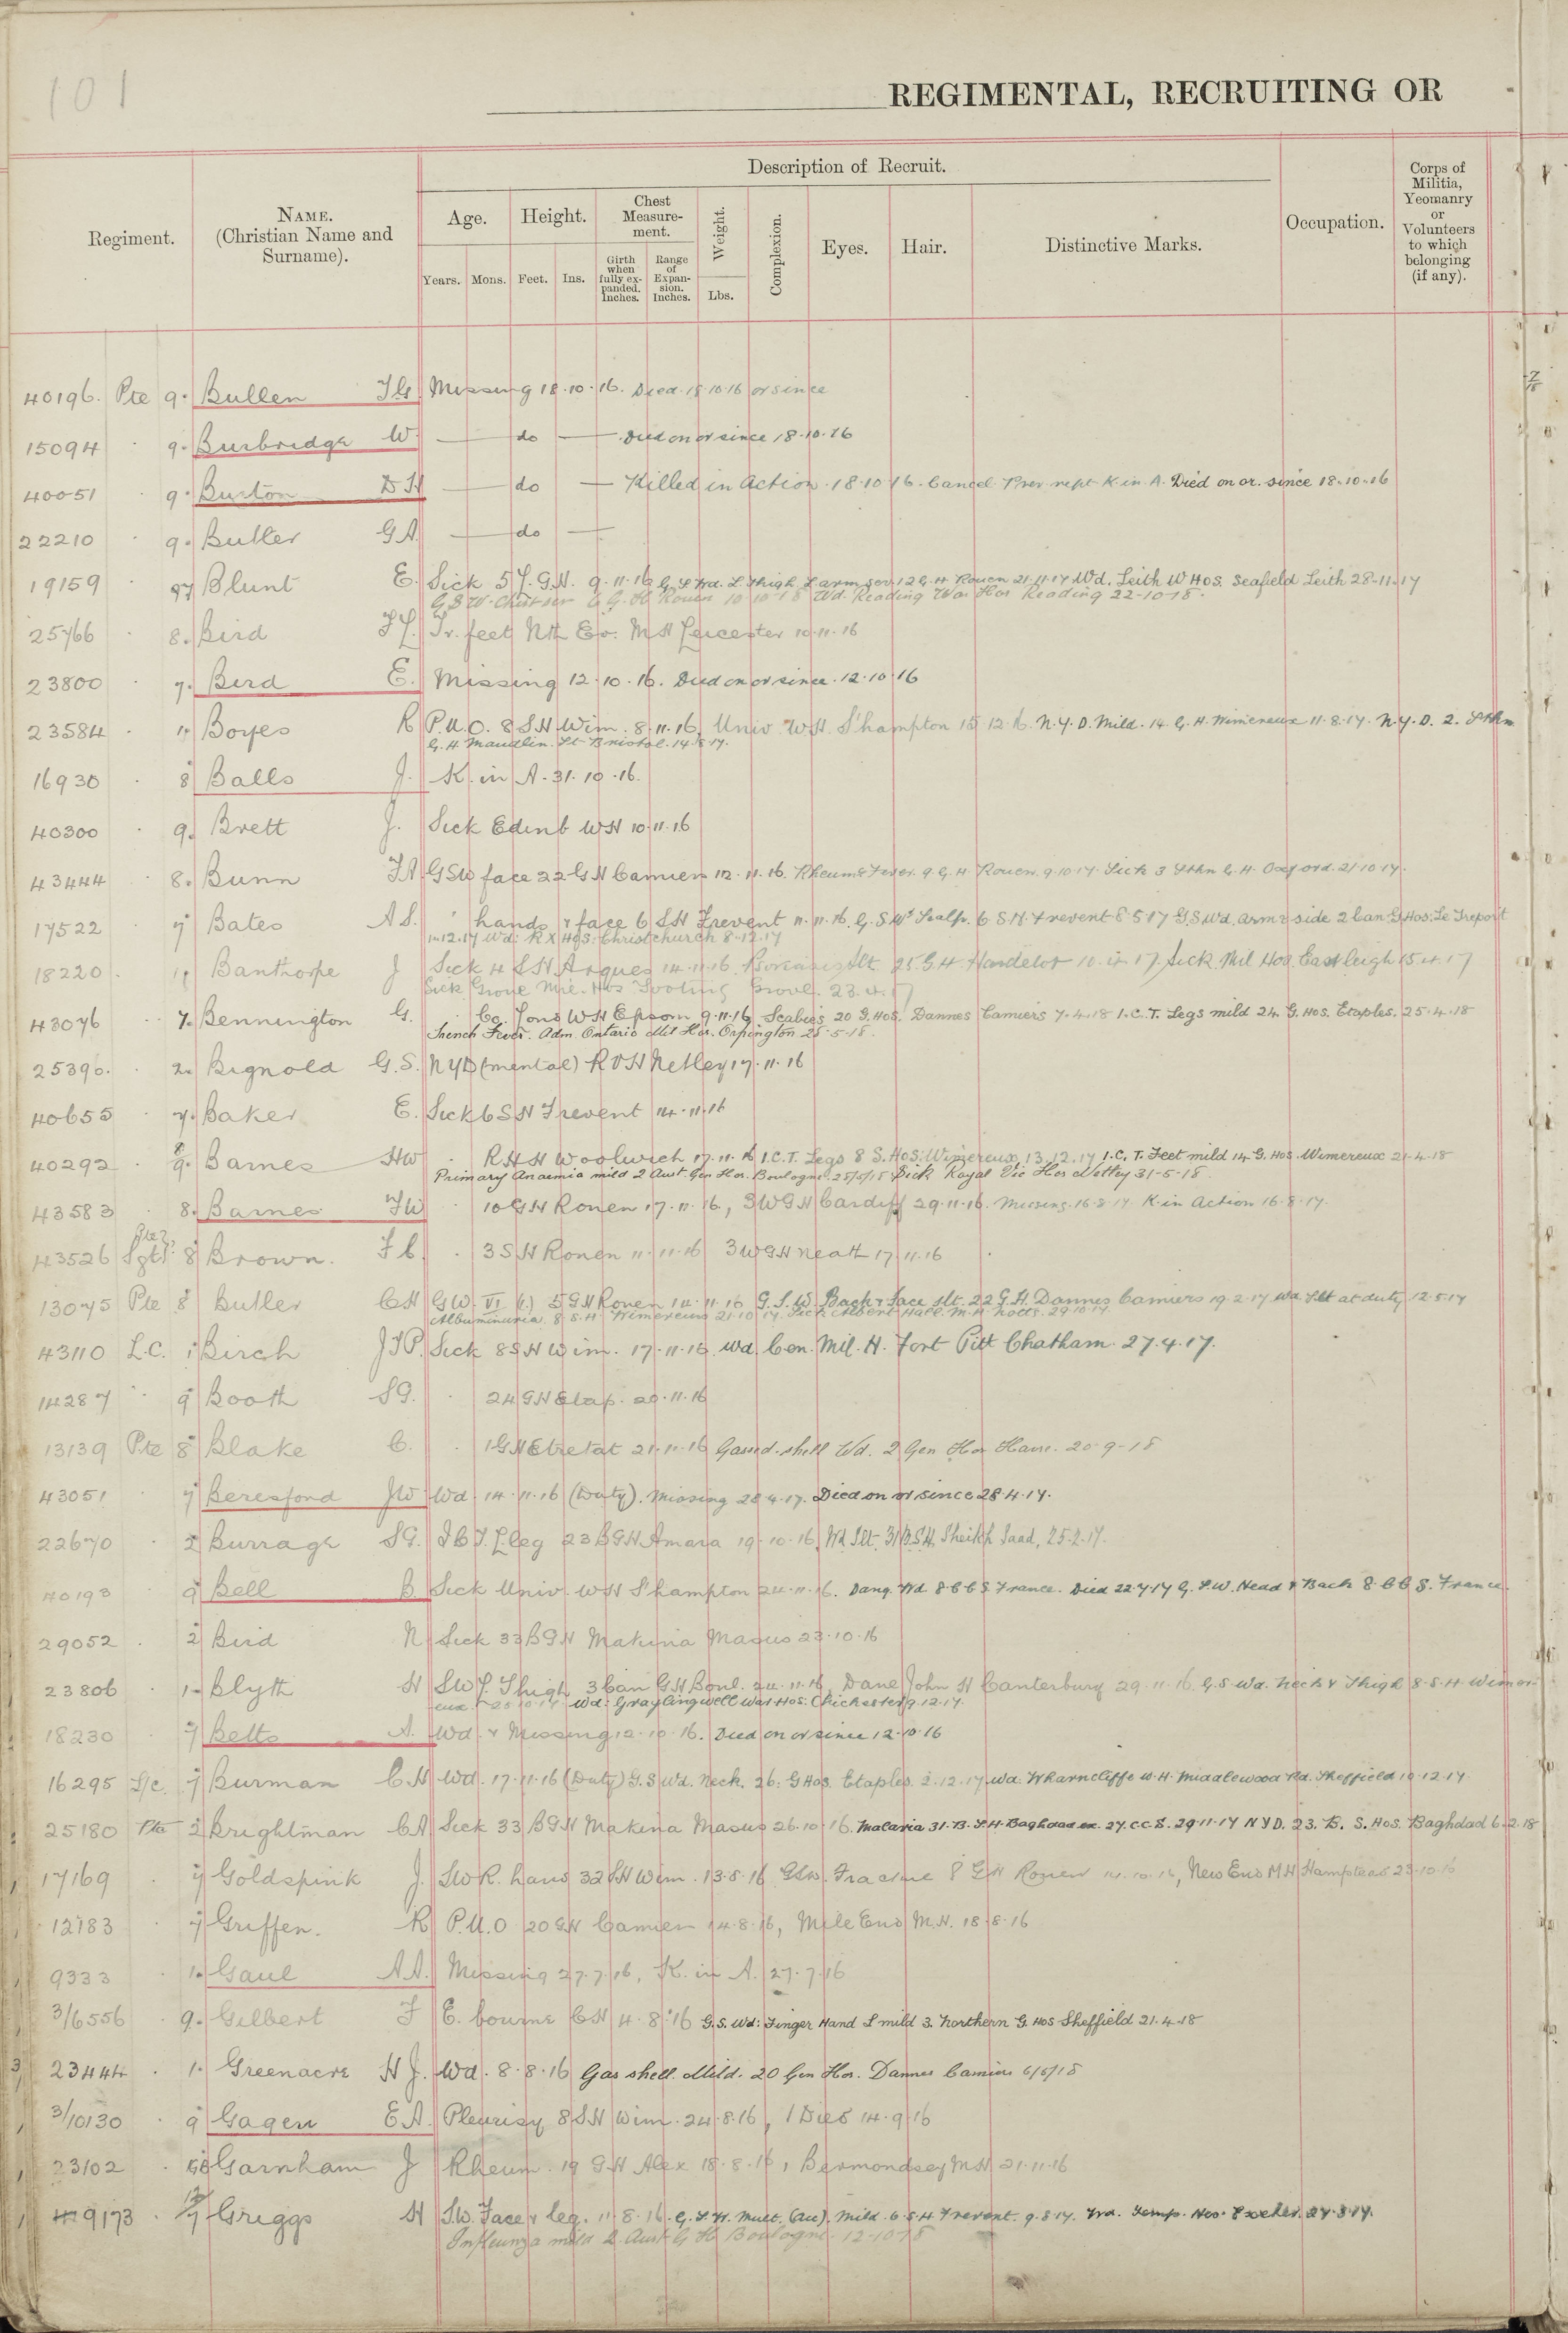 101
REGIMENTAL, RECRUITING OR
Regiment.
NAME.
(Christian Name and
Surname).
Description of Recruit.
Age.
Height.
Chest
Measure-
ment.
Weight.
Complexion.
Eyes.
Hair.
Distinctive Marks.
Occupation.
Corps of
Militia,
Yeomanry
or
Volunteers
to which
belonging
(if any).
Years.
Mons.
Feet.
Ins.
Girth
when
fully ex-
panded.
Inches.
Range
of
Expan-
sion.
Inches.
Lbs.
40196. Pte 9. Bullen J G Missing 18.10.16. Died 18.10.16 or since
15094 . 9. Burbridge W. — do — Died on or since 18.10.16
40051 . 9. Burton D H — do — Killed in Action 18.10.16. Cancel Prev rept K in A. Died on or since 18.10.16
22210 . 9. Butler G A. — do —
19159 . Blunt E. Sick 5 G.H. 9.11.16 G S Wd. L Thigh L arm sev 12 G.H Rouen 21.11.17 Wd. Leith W Hos. Seafield Leith 28.11.17
G S W. Chest sev 6 G.H Rouen 10-10-18 Wd. Reading War Hos Reading 22-10-18.
25766 . 8. Bird Tr. feet Nth Ev. M H Leicester 10.11.16
23800 . 7. Bird E. Missing 12.10.16. Died on or since 12.10.16
23584 . Boyes R P.U.O. 8 S H Wim. 8.11.16, Univ. W.H. S'hampton 15.12.16. N.Y.D. Mild. 14 G.H. Wimereux 11.8.17. N.Y.D. 2. Sthn
G.H Maudlin. St Bristol. 14.8.17.
16930 . 8 Balls J. K. in A. 31.10.16.
40300 . 9. Brett J. Sick Edinb WH 10.11.16
43444 . 8. Bunn GSW face 22 GH Camiers 12.11.16. Rheumc Fever. 9 G.H Rouen. 9.10.17. Sick 3 Sthn G.H. Oxford. 21.10.17.
17522 . 7 Bates A S. " hands & face 6 SH Frevent 11.11.16. G.S.Wd Scalp. 6 S.H. Frevent 8.5.17 G.S Wd. arm & side 2 Can G Hos: Le Treport
1.12.17 Wd: R X Hos: Christchurch 8.12.17
18220 . Banthorpe J Sick 4 SH Arques 14.11.16. slt 25 G.H Hardelot 10.4.17 Sick Mil Hos Eastleigh 15.4.17
Sick Grove Mil. Hos Tooting Grove. 23.4.17
43076 . 7. Bennington G. " Co. Lond WH Epsom 9.11.16 Scabies 20 G.Hos. Dannes Camiers 7.4.18 I.C.T. Legs mild 24 G.Hos. Etaples. 25.4.18
Trench Fever. Adm. Ontario Mil Hos. Orpington 25-5-18.
25390. . 2. Bignold G.S. NYD (mental) R V H Netley 17.11.16
40655 . 7. Baker E. Sick 6 S H Frevent 14.11.16
40292 . 8 9. Barnes HW " R H H Woolwich 17.11.16 I.C.T. Legs 8 S.Hos: Wimereux, 13.12.17 I.C.T. Feet mild 14 G.Hos. Wimereux 21.4.18
Primary Anaemia mild 2 Aust Gen Hos. Boulogne. 25/5/18 Sick Royal Vic Hos Netley 31-5-18.
43583 . 8. Barnes " 10 GH Rouen 17.11.16, 3WGH Cardiff 29.11.16. Missing. 16.8.17 K in Action 16.8.17.
43526 Sgt 8 Brown. " 3SH Rouen 11.11.16 3WGH Neath 17.11.16
13075 Pte 8 Butler C H GW. VI 5GH Rouen 14.11.16 G.S.W. Back & face slt. 22 G.H. Dannes Camiers 19.2.17 Wd slt at duty 12.5.17
Albuminuria. 8.S.H Wimereux 21.10.17. Sick Albert Hall. M.H Notts. 29.10.17
43110 L.C. 1 Birch Sick 8SH Wim. 17.11.16. Wd Cen. Mil. H. Fort Pitt Chatham. 27.4.17.
14287 . 9 Booth S G. " 24GH Etap. 20.11.16
13139 Pte 8 Blake C. " 1GH Etretat 21.11.16 Gassed. shell Wd. 2 Gen Hos Havre. 20-9-18
43051 . 7 Beresford JW Wd. 14.11.16 (Duty). Missing 28.4.17. Died on or since 28.4.17.
22670 . 2 Burrage S G. I C T. L leg 23 BGH Amara 19.10.16, Wd Slt. 31 B.S.H, Sheikh Saad, 25.2.17.
40193 9 Bell B. Sick Univ. WH S'hampton 24.11.16. Dang. Wd 8.C C S France. Died 22.7.17 G.S.W. Head & Back 8.C C S. France.
29052 . 2 Bird N Sick 33 BGH Makina Masus 23.10.16
23806 . 1. Blyth H SW L Thigh 3 Can GH Boul. 24.11.16, Dane John H Canterbury 29.11.16. G.S Wd. Neck & Thigh 8.S.H. Wimer-
eux. 25.10.17. Wd: Graylingwell War Hos: Chichester 9.12.17.
18230 7 Betts A. Wd. & Missing 12.10.16. Died on or since 12.10.16
16295 L/c. 7 Burman C.H Wd. 17.11.16 (Duty) G.S Wd. Neck. 26: G Hos. Etaples. 2.12.17. Wd: Wharncliffe W.H. Middlewood Rd. Sheffield 10.12.17
25180 Pte 2 Brightman Sick 33 BGH Makina Masus 26.10.16. Malaria 31.B.S.H. Baghdad ex. 27.C.C.S. 29.11.17 NYD. 23. B. S. Hos. Baghdad 6.2.18
17169 . 7 Goldspink J. SW R. hand 32 SH Wim. 13.8.16 GSW. Fracture 8 GH Rouen 14.10.16, New End M H Hampstead 23.10.16
12183 . 7 Griffen. R P.U.O 20 GH Camiers 14.8.16, Mile End M.H. 18.8.16
9333 . 1. Gaul A A. Missing 27.7.16, K. in A. 27.7.16
3/6556 . 9. Gilbert F E. bourne CH 4.8.16 G.S. Wd: Finger Hand L mild 3. Northern G.Hos Sheffield 21.4.18
23444 . 1. Greenacre H J. Wd. 8.8.16 Gas shell. Mild. 20 Gen Hos. Dannes Camiers 6/5/18
3/10130 . 9 Gagen E A. Pleurisy 8 S H Wim. 24.8.16, Died 14.9.16
23102 . Garnham J Rheum. 19 G H Alex 18.8.16, Bermondsey M H 21.11.16
9173 . Griggs H S.W. Face & leg. 11.8.16. G.S.W. Mult. (au). Mild. 6.S.H Frevent. 9.8.17. Wd. Temp. Hos. Exeter. 27.8.17.
Influenza mild 2. Aust G H Boulogne. 12-10-18